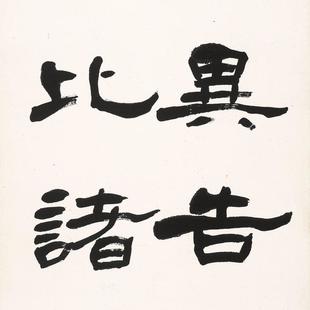 異告
比諸